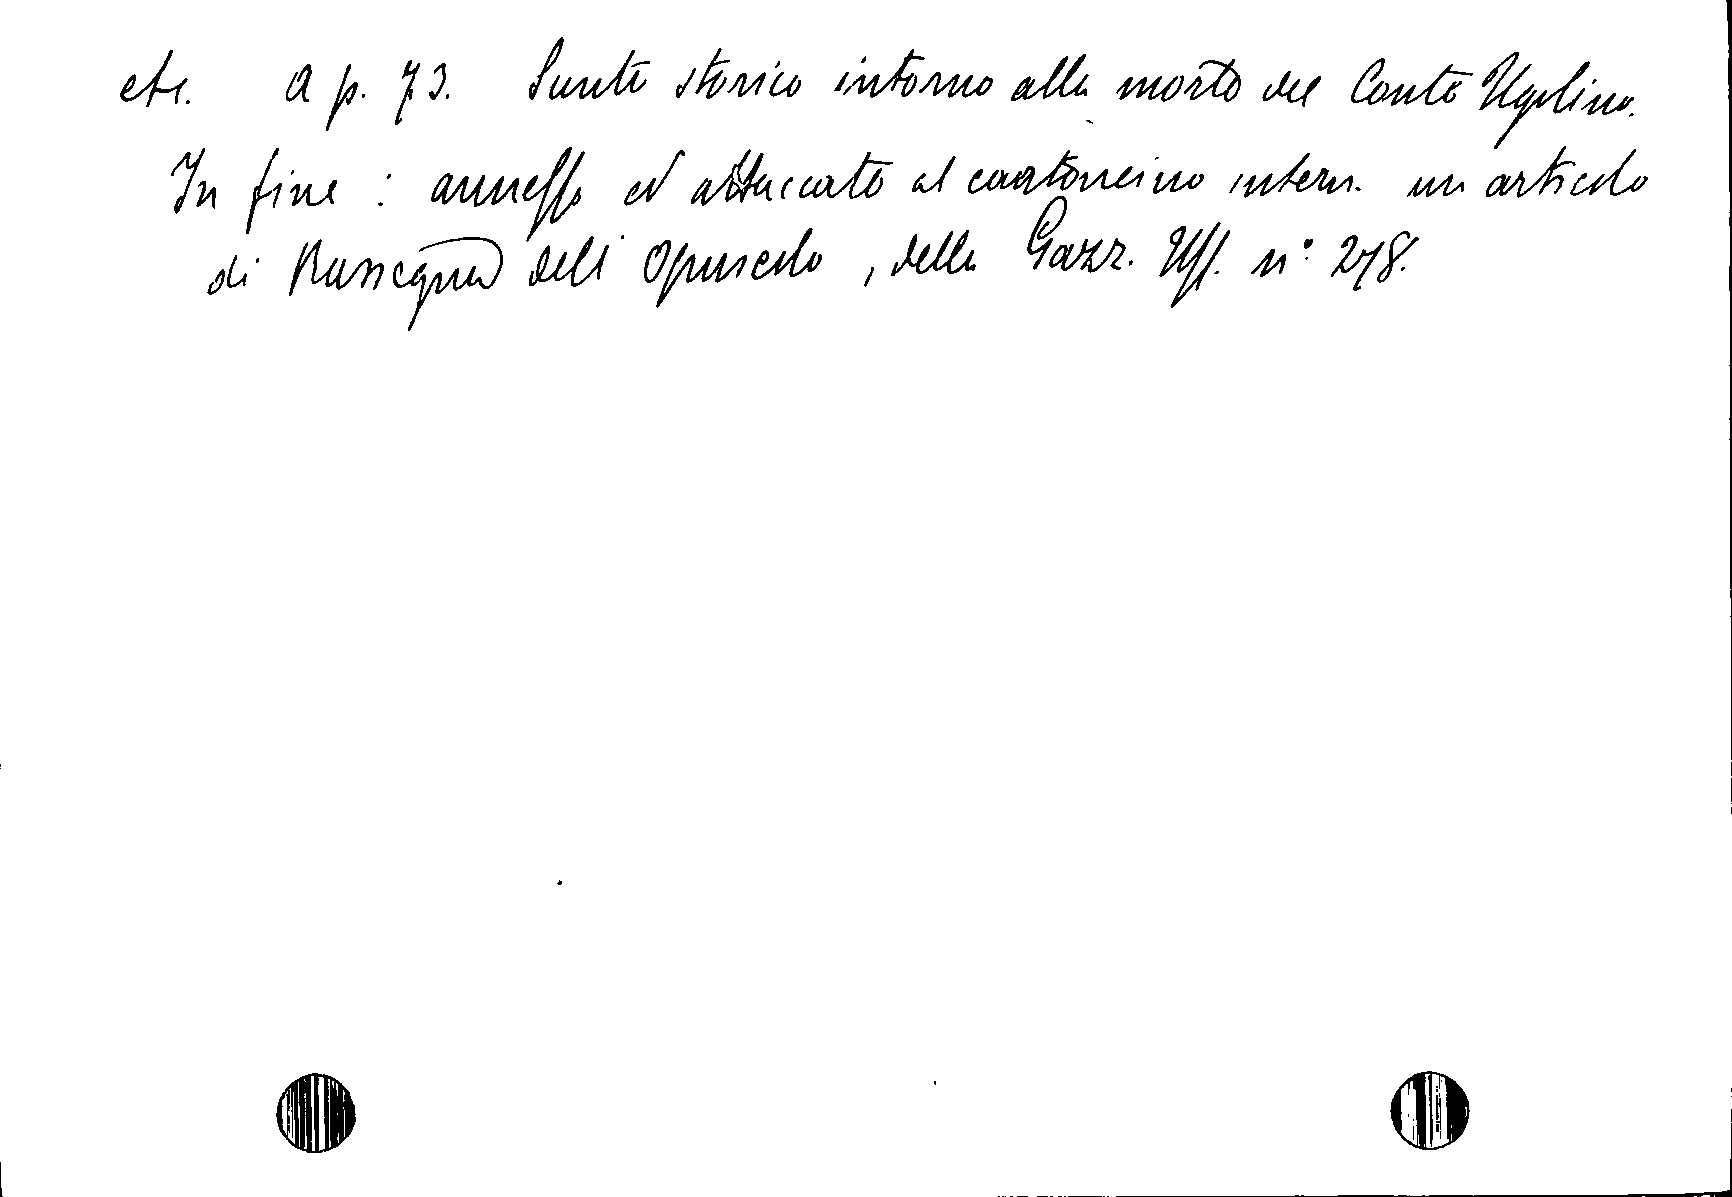 etc. A p. 73. Sunto storico intorno alla morte del Conte Ugolino.
In fine : annesso ed attaccato al cartoncino intern. un articolo
di Rassegna dell'opuscolo, della Gazz. Uff. n° 278.